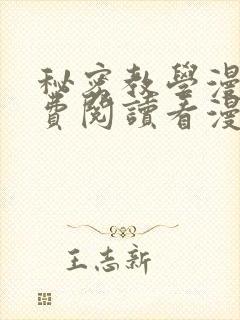 秘密教學漫
費閱讀看漫
王志新